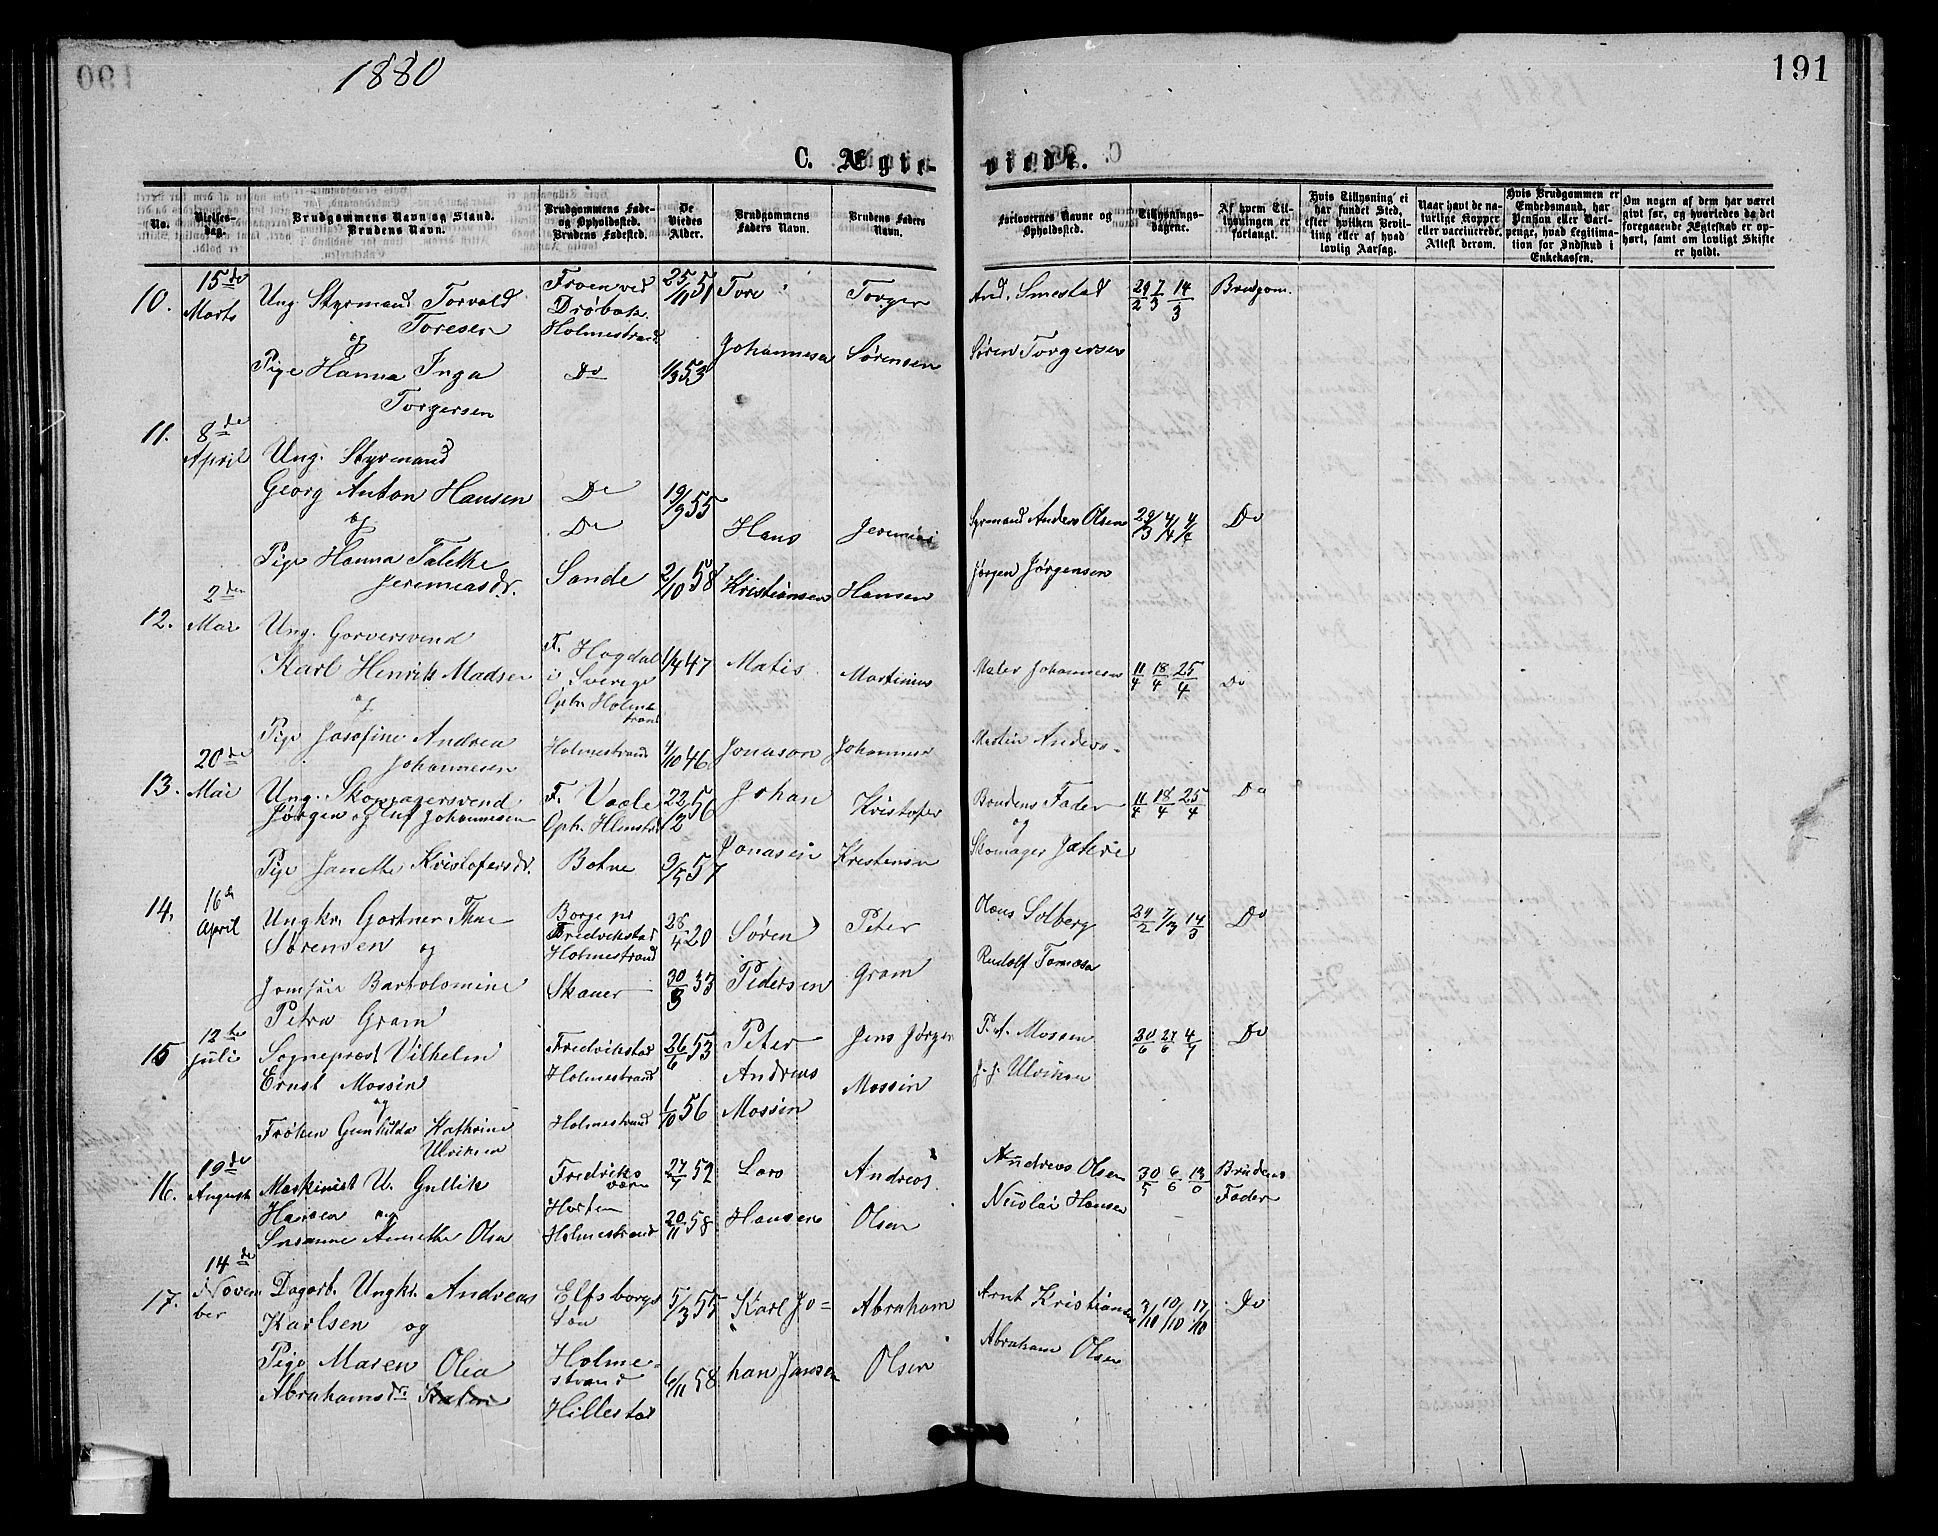 1880
191
C. Ægte-
viede.
No.
Vielses-
dag.
Brudgommens Navn og Stand.
Brudens Navn.
Brudgommens Føde-
og Opholdssted.
Brudens Fødested.
De
Viedes
Alder.
Brudgommens
Faders Navn.
Brudens Faders
Navn.
Forlovernes Navne og
Opholdssted.
Tillysnings-
dagene.
Af hvem Til-
lysningen er
forlangt.
Hvis Tillysning ei
har fundet Sted,
efter hvilken Bevil-
ling eller af hvad
lovlig Aarsag.
Naar havt de na-
turlige Kopper
eller vaccinerede.
Attest derom.
Hvis Brudgommen er
Embedsmand, har
Pension eller Vart-
penge, hvad Legitima-
tion for Indskud i
Enkekassen.
Om nogen af dem har været
givt før, og hvorledes da det
foregaaende Ægteskab er op-
hørt, samt om lovligt Skifte
er holdt.
10.
15de
Marts
Ung. Styrmand Torvald
Toresen
og
Pige Hanna Inga
Torgersen
Froen ved
Drøbak
Holmestrand
Do
25/11 51
1/3 53
Tore
Johannesen
Torger
Sørensen
And. Smestad
Søren Torgersen
29/2 7/3 14/3
Brudgom.
11.
8de
April
Ung. Styrmand
Georg Anton Hansen
og
Pige Hanna Talette
Jeremiasdr.
Do
Do
Sande
19/9 55
2/10 58
Hans
Kristiansen
Jeremias
Hansen
Syrmand Anders Olsen
Jørgen Jørgensen
29/3 4/4 4/4
Do
12.
2den
Mai
Ung. Garversvend
Karl Henrik Madsen
og
Pige Josefine Andrea
Johannesen
F. Hogdal
i Sverige
Oph. Holme
strand
Holmestrand
1/4 47
4/10 46
Matis
Jonason
Martinius
Johannesen
Maler Johannesen
Martin Anders-
11/4 18/4 25/4
Do
13.
20de
Mai
Ung. Skomagersvend
Jørgen Oluf Johannesen
og
Pige Janette Kristofersdr.
F. Vaale
Oph. Hlmstrd
Botne
22/12 56
9/5 57
Johan
Jonasen
Kristofer
Kristensen
Brudens Fader
og
Skomager
11/4 18/4 25/4
Do
14.
16de
April
Ungkr. Gartner Thor
Sørensen og
Jomfru Bartolomine
Petra Gram
Borge pr
Fredrikstad
Holmestrand
Skauer
28/4 20
30/3 33
Søren
Pedersen
Peter
Gram
Olaus Solberg
Rudolf Tomesen
29/2 7/3 14/3
Do
15
12te
Juli
Sognepræst Vilhelm
Ernst Mossin
og
Frøken Gunhilda Kathrine
Ulriksen
Fredrikstad
Holmestrand
Holmestrand
26/6 53
1/10 56
Peter
Andreas
Mossin
Jens Jørgen
Mossin
P. A. Mossin
J. J. Ulriksen
20/6 27/6 4/7
Do
16.
19de
August
Maskinist U. Gullik
Hansen og
Susanne Annette Olsen
Fredriks
værn
Horten
Holmestrand
27/7 52
20/11 58
Lars
Hansen
Andreas
Olsen
Andreas Olsen
Nicolai Hansen
30/5 6/6 13/6
Brudens
Fader
17.
14de
Novem
ber
Dagarb. Ungkr. Andreas
Karlsen og
Pige Maren Olea
Abrahamsdr.
Elfsborgs
Län
Holme-
strand
Hillestad
5/3 55
6/11 58
Karl Jo=
han Jansen
Abraham
Olsen
Arnt Kristiansen
Abraham Olsen
3/10 10/10 17/10
Do